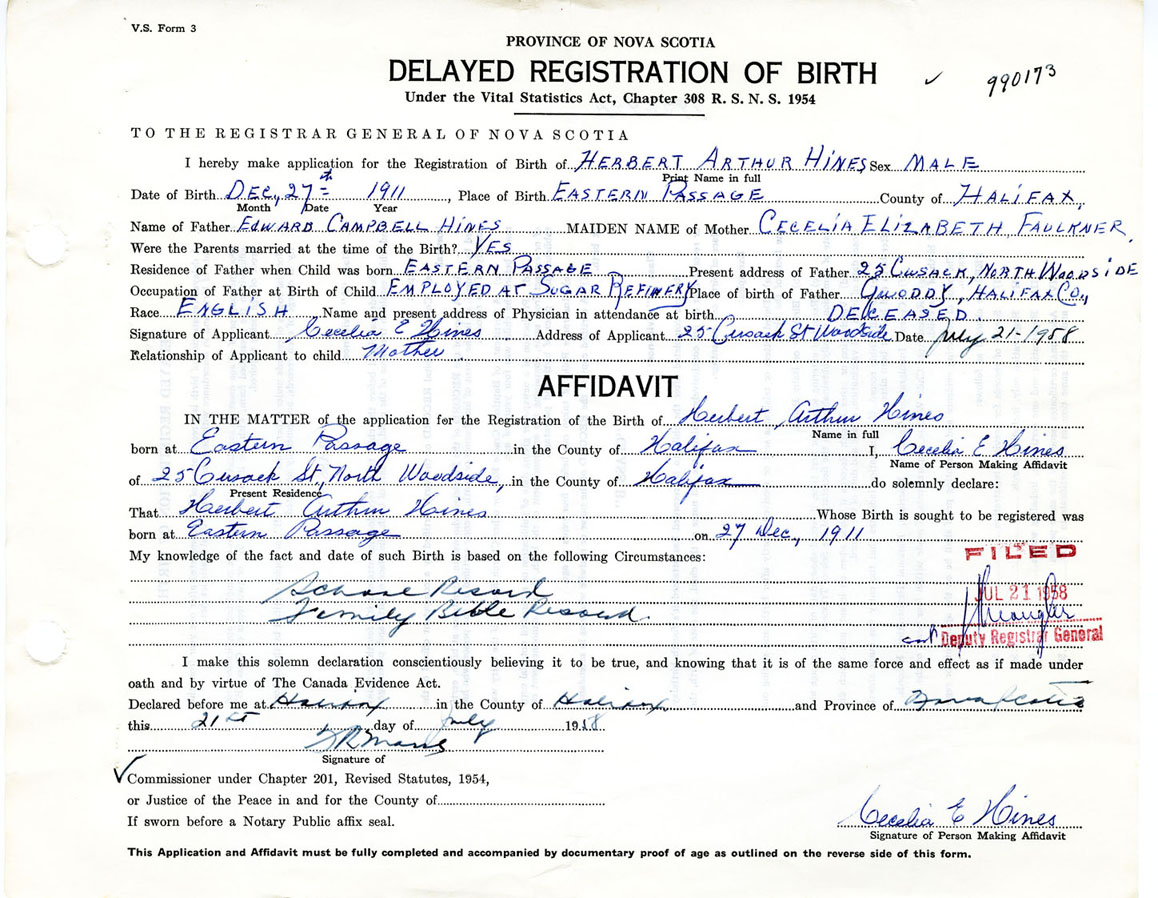 V.S. Form 3
PROVINCE OF NOVA SCOTIA
DELAYED REGISTRATION OF BIRTH ✓ 990173
Under the Vital Statistics Act, Chapter 308 R. S. N. S. 1954
TO THE REGISTRAR GENERAL OF NOVA SCOTIA
I hereby make application for the Registration of Birth of HERBERT ARTHUR HINES Sex MALE
Print Name in full
Date of Birth DEC, 27th 1911, Place of Birth EASTERN PASSAGE County of HALIFAX,
Month Date Year
Name of Father EDWARD CAMPBELL HINES MAIDEN NAME of Mother CECELIA ELIZABETH FAULKNER,
Were the Parents married at the time of the Birth? YES
Residence of Father when Child was born EASTERN PASSAGE Present address of Father 25 CUSACK, NORTH WOODSIDE
Occupation of Father at Birth of Child EMPLOYED AT SUGAR REFINERY Place of birth of Father QUODDY, HALIFAX CO,
Race ENGLISH Name and present address of Physician in attendance at birth DECEASED
Signature of Applicant Cecelia E Hines Address of Applicant 25 Cusack St Woodside Date July 21-1958
Relationship of Applicant to child Mother
AFFIDAVIT
IN THE MATTER of the application for the Registration of the Birth of Herbert Arthur Hines
Name in full
born at Eastern Passage in the County of Halifax I, Cecelia E Hines
Name of Person Making Affidavit
of 25 Cusack St, North Woodside, in the County of Halifax do solemnly declare:
Present Residence
That Herbert Arthur Hines Whose Birth is sought to be registered was
born at Eastern Passage on 27 Dec, 1911
My knowledge of the fact and date of such Birth is based on the following Circumstances:
FILED
School Record
JUL 21 1958
Family Bible Record.
Deputy Registrar General
I make this solemn declaration conscientiously believing it to be true, and knowing that it is of the same force and effect as if made under
oath and by virtue of The Canada Evidence Act.
Declared before me at Halifax in the County of Halifax and Province of Nova Scotia
this 21st day of July 1958
Signature of
✓ Commissioner under Chapter 201, Revised Statutes, 1954,
or Justice of the Peace in and for the County of
If sworn before a Notary Public affix seal.
Cecelia E Hines
Signature of Person Making Affidavit
This Application and Affidavit must be fully completed and accompanied by documentary proof of age as outlined on the reverse side of this form.